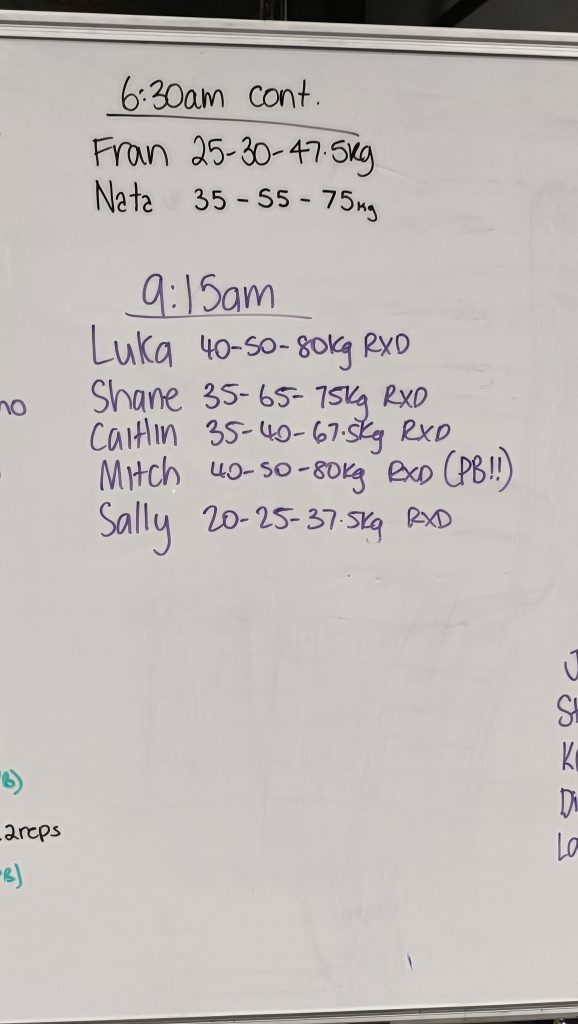 6:30am cont.
Fran 25-30-47.5kg
Nata 35-55-75kg
9:15am
Luka 40-50-80kg RXD
Shane 35-65-75kg RXD
Caitlin 35-40-67.5kg RXD
Mitch 40-50-80kg RXD (PB!!)
Sally 20-25-37.5kg RXD
2reps